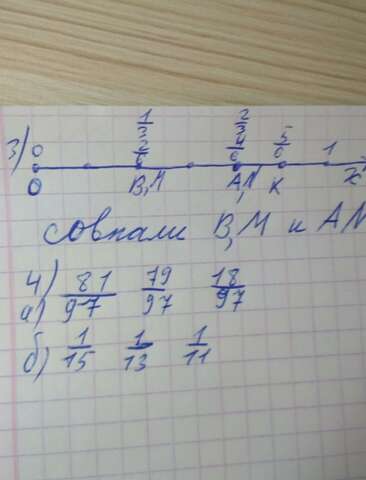 3) 0 1/3 2/3 5/6 1
2/6 4/6
O B,M A,N K x
совпали B,M и AN
4) 81/97 79/97 18/97
а)
б) 1/15 1/13 1/11